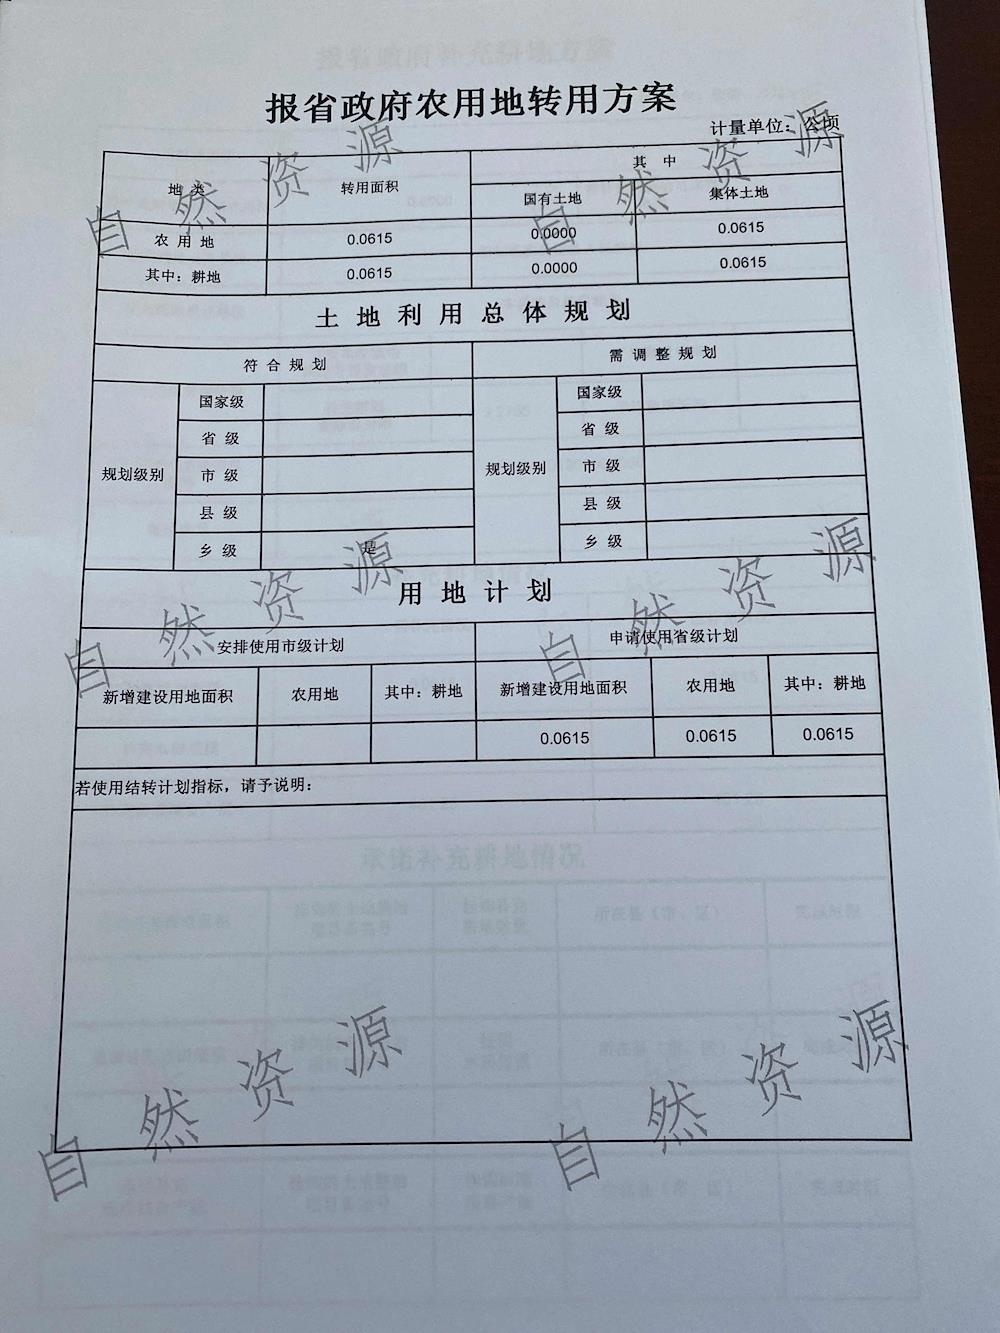 报省政府农用地转用方案
计量单位：公顷
地 类 转用面积 其 中
国有土地 集体土地
农 用 地 0.0615 0.0000 0.0615
其中：耕地 0.0615 0.0000 0.0615
土 地 利 用 总 体 规 划
符 合 规 划 需 调 整 规 划
规划级别 国家级 规划级别 国家级
省 级 省 级
市 级 市 级
县 级 县 级
乡 级 是 乡 级
用 地 计 划
安排使用市级计划 申请使用省级计划
新增建设用地面积 农用地 其中：耕地 新增建设用地面积 农用地 其中：耕地
0.0615 0.0615 0.0615
若使用结转计划指标，请予说明：
自然资源
自然资源
自然资源
自然资源
自然资源
自然资源